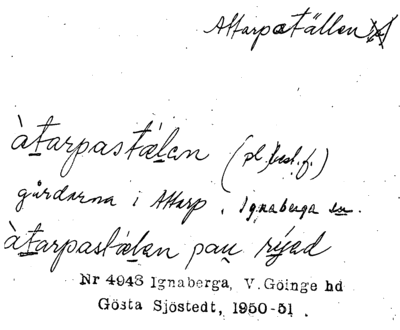 Attarpställen
àtarpastǽlen (pl. best. f.)
gårdarna i Attarp, Ignaberga sn.
àtarpastǽlen pau
Nr 4948 Ignaberga, V.Göinge hd
Gösta Sjöstedt, 1950-51.